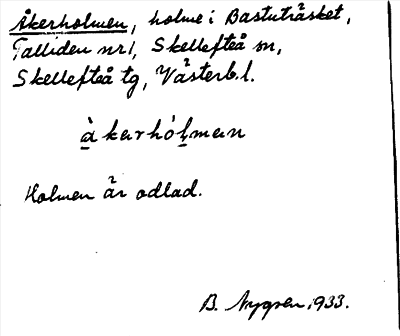 Åkerholmen, holme i Bastuträsket,
Talliden nr 1, Skellefteå sn,
Skellefteå tg, Västerb. l.
àkarhólman
Holmen är odlad.
B. Nygren, 1933.